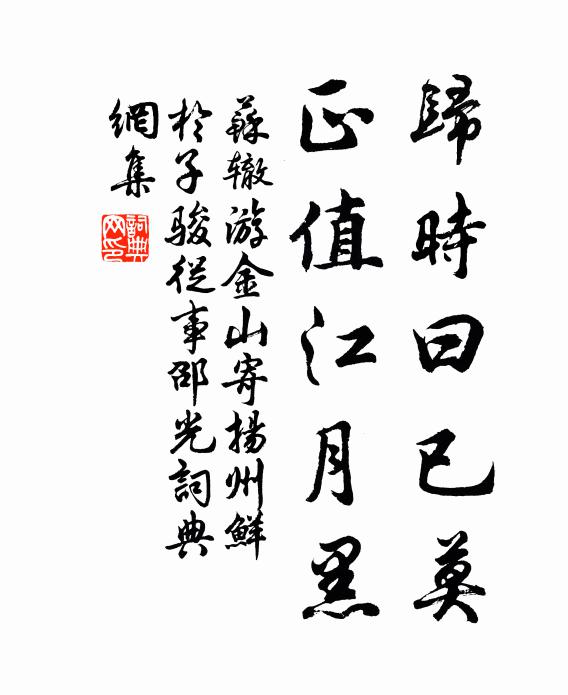 歸時日已莫
正值江月黑
蘇轍游金山寄揚州鮮
於子駿從事邵光詞典
網集
詞典网印